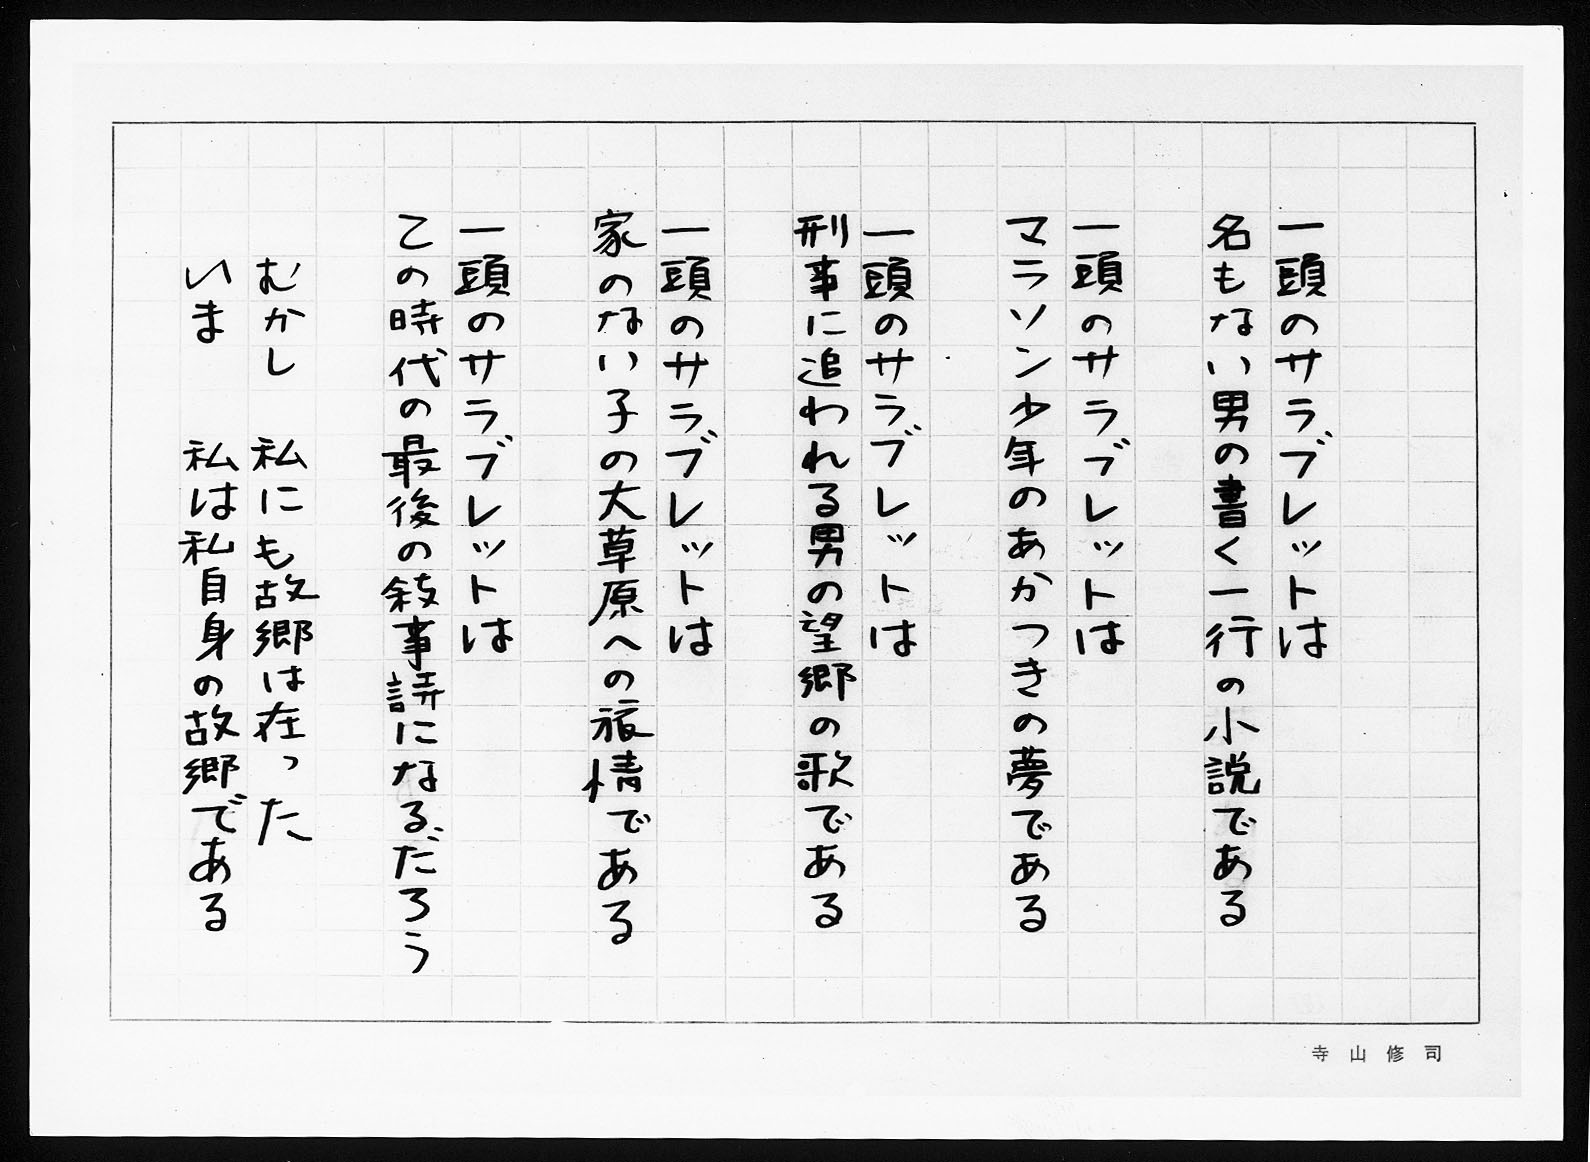 一頭のサラブレットは
名もない男の書く一行の小説である
一頭のサラブレットは
マラソン少年のあかつきの夢である
一頭のサラブレットは
刑事に追われる男の望郷の歌である
一頭のサラブレットは
家のない子の大草原への旅情である
一頭のサラブレットは
この時代の最後の敍事詩になるだろう
むかし　私にも故郷は在った
いま　　私は私自身の故郷である
寺山修司